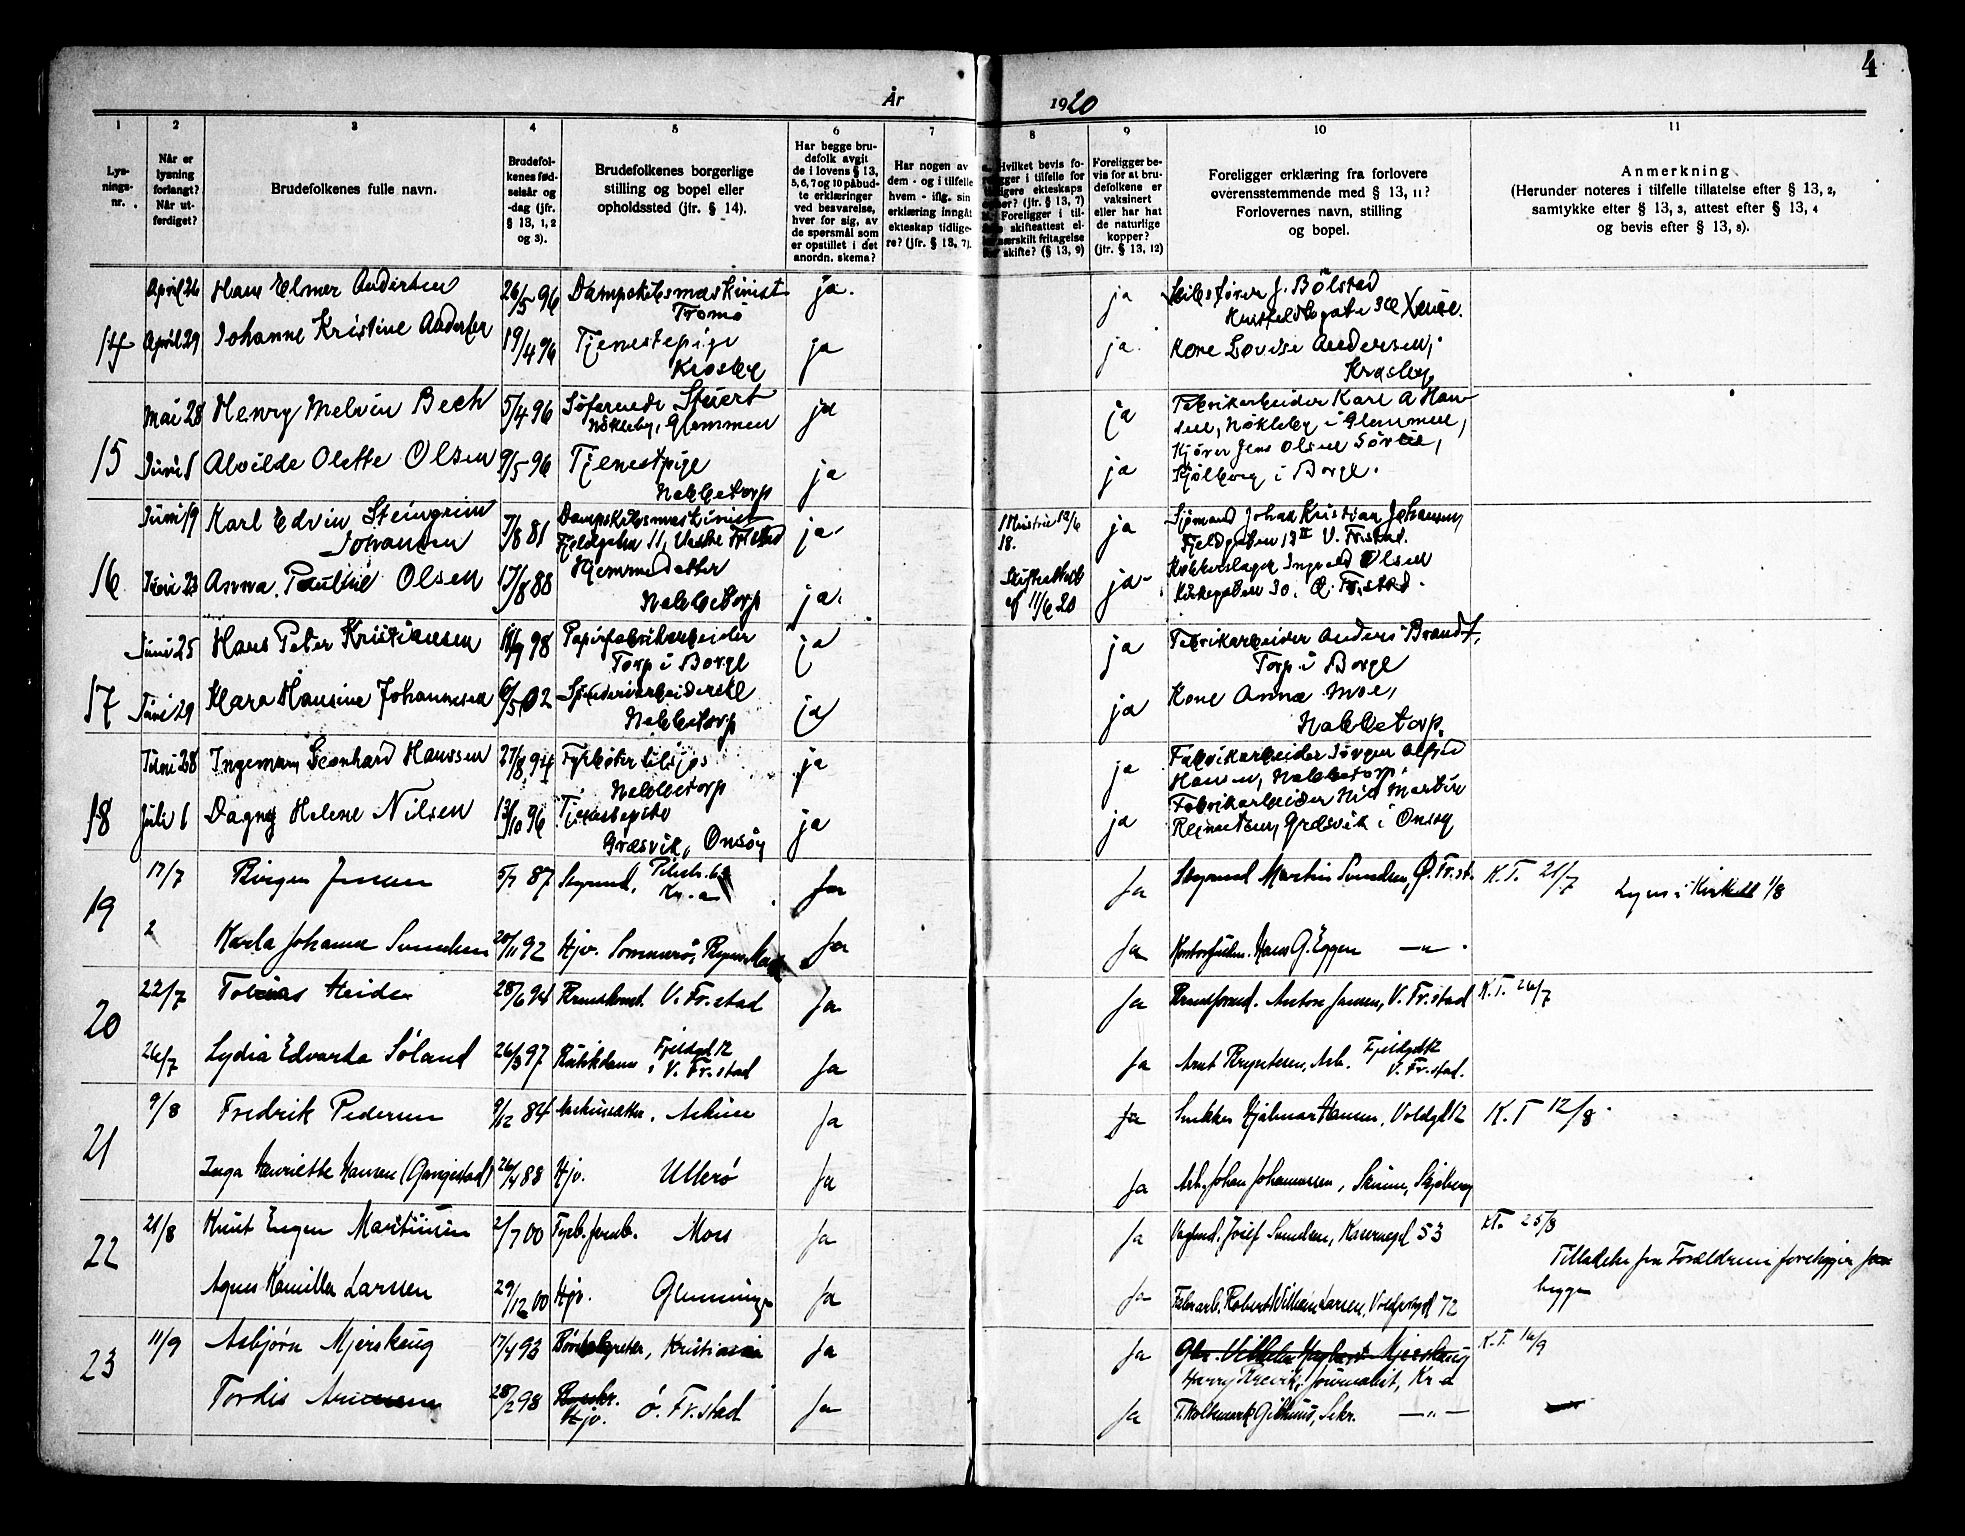 4
År 1920
1
2
3
4
5
6
7
8
9
10
11
Lys-
nings-
nr.
Når er
lysning
forlangt?
Når ut-
ferdiget?
Brudefolkenes fulle navn.
Brudefol-
kenes fød-
selsår og
-dag (jfr.
§ 13, 1, 2
og 3).
Brudefolkenes borgerlige
stilling og bopel eller
opholdssted (jfr. § 14).
Har begge bru-
defolk avgit
de i lovens § 13,
5, 6, 7 og 10 påbud-
te erklæringer
ved besvarelse,
hver for sig, av
de spørsmål som
er opstillet i det
anordn. skema?
Har nogen av
dem - og i tilfelle
hvem - iflg. sin
erklæring inngåt
ekteskap tidlige-
re? (jfr. § 13, 7).
Hvilket bevis fo-
religger i tilfelle for
tidligere ekteskaps
ophør? (jfr. § 13, 7)
Foreligger i til-
felle skifteattest el-
ler særskilt fritagelse
for skifte? (§ 13, 9)
Foreligger be-
vis for at bru-
defolkene er
vaksinert
eller har hat
de naturlige
kopper?
(jfr. § 13, 12)
Foreligger erklæring fra forlovere
overensstemmende med § 13, 11?
Forlovernes navn, stilling
og bopel.
Anmerkning
(Herunder noteres i tilfelle tillatelse efter § 13, 2,
samtykke efter § 13, 3, attest efter § 13, 4
og bevis efter § 13, 8).
April 26 Hans Elmer Andersen 26/5 96 Dampskibsmaskinist ja. ja J. Bölstad
Tromö
14 April 29 Johanne Kristine Andersen 19/4 96 Tjenestepige ja ja. Kone Lovise Andersen,
Krosby Krosby
Mai 28 Henry Melvin Bech 5/4 96 Söfarende Stuert ja ja Fabrikarbeider Karl A Han-
Nökleby, Glemmen sen, Nökleby i Glemmen,
15 Juni 1 Alvilde Olette Olsen 9/5 96 Tjenestpige ja ja Kjörer Jens Olsen
Nabbetorp Kjölberg i Borge.
Juni 19 Karl Edvin Steingrim 7/8 81 Dampskibsmaskinist ja. 12/6 18. ja Sigmand Johan Kristian Johansen,
Johansen Fjeldgaten 11, Vestre Fr.stad Fjeldgaten 13 II V. Fr.stad.
16 Juni 23 Anna Pauline Olsen 17/8 88 Hjemmedatter ja. Skifteattest ja. Ingvald Olsen
Nabbetorp af 11/6 20 Kirkegaten 30. Ø. Fr.stad.
Juni 25 Hans Peter Kristiansen 98 Papirfabrikarbeider ja ja Fabrikarbeider Anders Brandt,
Torp i Borge Torp i Borge
17 Juni 29 Klara Hansine Johannesen 6/5 02 ja ja Kone Anna Moe,
Nabbetorp Nabbetorp.
Juni 28 Ingeman Leonhard Hanssen 27/8 94 Fyrböter tilsjøs ja ja Fabrikarbeider Jörgen Alfred
Nabbetorp Hansen, Nabbetorp,
18 Juli 1 Dagny Helene Nilsen 13/10 96 Tjenestepike ja ja Fabrikarbeider Nils Martin
Græsvik, Onsöy Græsvik i Onsöy
17/7 Birger Jensen 5/7 87 Styrmd. Pilestr. 63 Ja Ja Styrmd Martin Sundbu, Ø. Fr.st. K.T. 21/7 Lyses i Kirken 1/8
19 Kr.a
Karla Johanne 20/11 92 Hjv. Ja Ja Hans G. Eggen —"—
22/7 Tobias Heide 28/6 94 V. Fr.stad Ja Ja Anton Jansen, V. Fr.stad K.T. 26/7
20
26/7 Lydia Edvarda Söland 26/3 97 Butikdame Fjeldgd 12 Ja Ja Arb. Fjeldgd 12
V. Fr.stad V. Fr.stad.
9/8 Fredrik Pedersen 9/12 84 Askim Ja Ja Snekker Hjalmar Hansen, Voldgd 12 K.T 12/8
21
Inga Henriette Hansen (Gangestad) 26/4 88 Hjv. Ullerö Ja Ja Arb. Johan Johannessen, Skjeberg
21/8 Knut Eugen Martinsen 2/7 00 Moss Ja Ja Josef Sundbu, Kasernegd 53 KT. 25/8
22 Tilladelse fra Forældrene foreligger for
Agnes Kamilla Larsen 29/12 00 Hjv. Glemminge Ja Ja Fabr.arb. Robert Wilhelm Larsen, Voldgd 72 begge
11/9 Asbjørn Mjerskaug 17/4 93 Kristiania Ja Ja Mjerskaug K.T. 16/9
23 Harry journalist, Kr.a
Tordis Arnesen 28/2 98 Hjv. Ö. Fr.stad Ja Ja Sekr. —"—